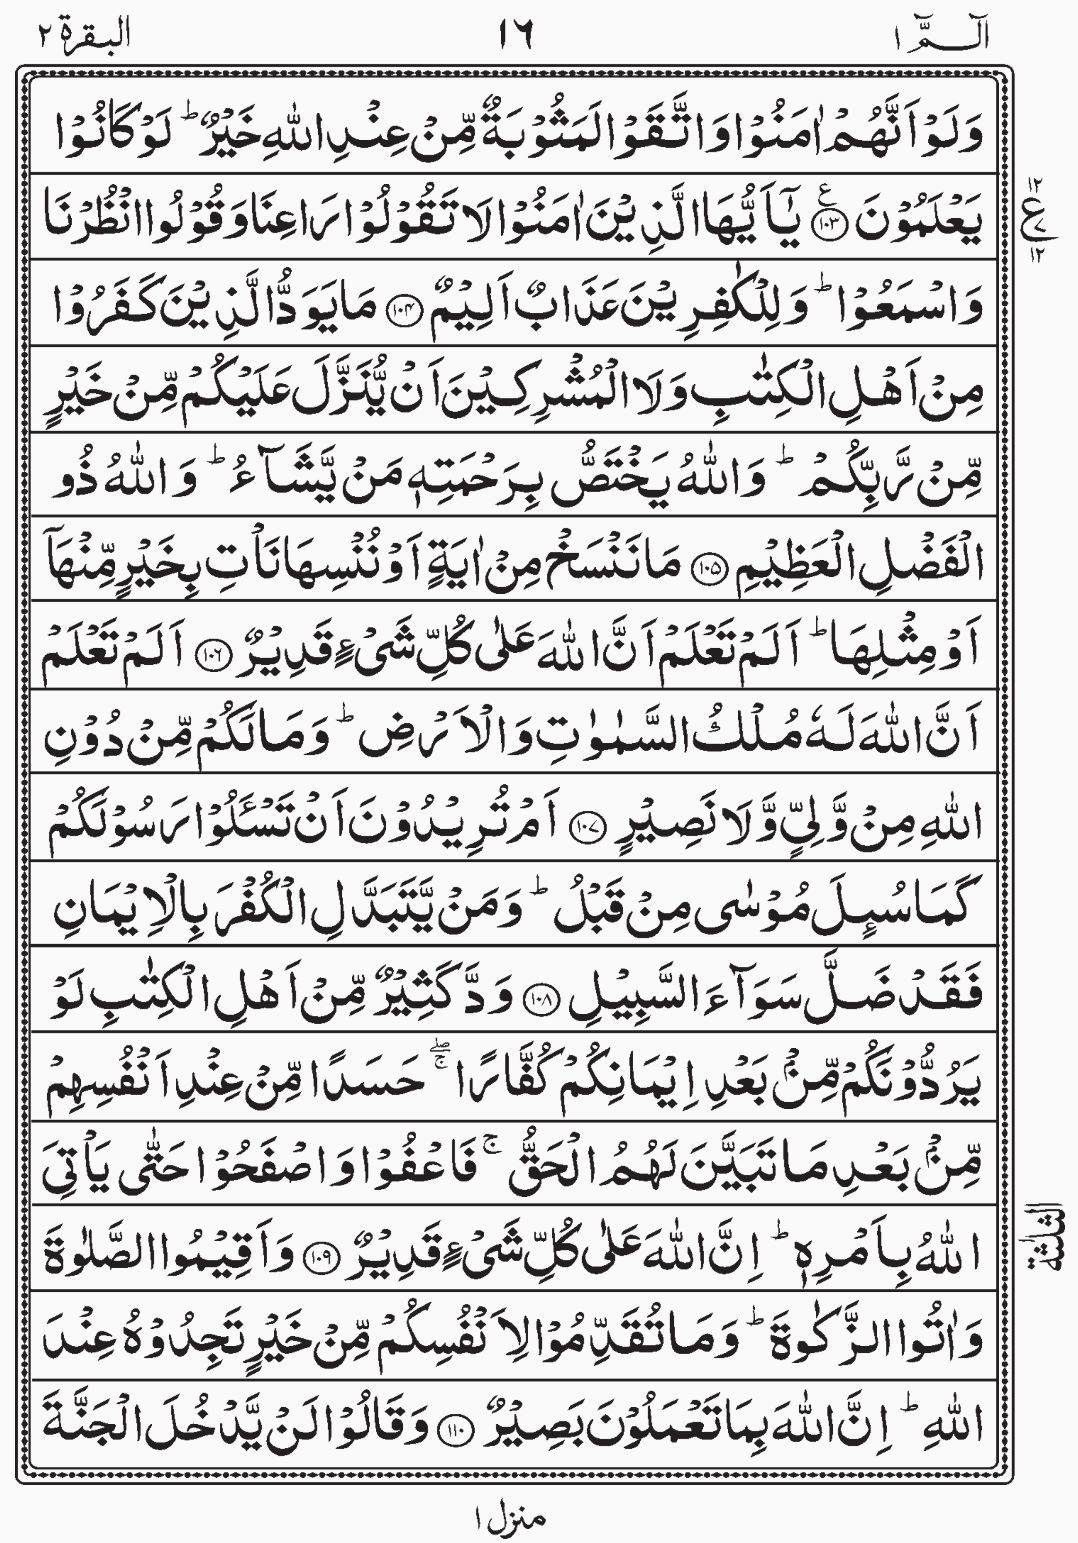 الٓـمّٓ ١ ١٦ البقرة ٢
وَلَوْ اَنَّهُمْ اٰمَنُوْا وَاتَّقَوْا لَمَثُوْبَةٌ مِّنْ عِنْدِ اللّٰهِ خَيْرٌ ؕ لَوْ كَانُوْا
يَعْلَمُوْنَ ﴿۱۰۳﴾ ع يٰۤاَيُّهَا الَّذِيْنَ اٰمَنُوْا لَا تَقُوْلُوْا رَاعِنَا وَقُوْلُوا انْظُرْنَا
١٢
ع
٧
١٢
وَاسْمَعُوْا ؕ وَلِلْكٰفِرِيْنَ عَذَابٌ اَلِيْمٌ ﴿۱۰۴﴾ مَا يَوَدُّ الَّذِيْنَ كَفَرُوْا
مِنْ اَهْلِ الْكِتٰبِ وَلَا الْمُشْرِكِيْنَ اَنْ يُّنَزَّلَ عَلَيْكُمْ مِّنْ خَيْرٍ
مِّنْ رَّبِّكُمْ ؕ وَاللّٰهُ يَخْتَصُّ بِرَحْمَتِهٖ مَنْ يَّشَآءُ ؕ وَاللّٰهُ ذُو
الْفَضْلِ الْعَظِيْمِ ﴿۱۰۵﴾ مَا نَنْسَخْ مِنْ اٰيَةٍ اَوْ نُنْسِهَا نَاْتِ بِخَيْرٍ مِّنْهَاۤ
اَوْ مِثْلِهَا ؕ اَلَمْ تَعْلَمْ اَنَّ اللّٰهَ عَلٰى كُلِّ شَىْءٍ قَدِيْرٌ ﴿۱۰۶﴾ اَلَمْ تَعْلَمْ
اَنَّ اللّٰهَ لَهٗ مُلْكُ السَّمٰوٰتِ وَالْاَرْضِ ؕ وَمَا لَكُمْ مِّنْ دُوْنِ
اللّٰهِ مِنْ وَّلِيٍّ وَّلَا نَصِيْرٍ ﴿۱۰۷﴾ اَمْ تُرِيْدُوْنَ اَنْ تَسْـَٔلُوْا رَسُوْلَكُمْ
كَمَا سُىِٕلَ مُوْسٰى مِنْ قَبْلُ ؕ وَمَنْ يَّتَبَدَّلِ الْكُفْرَ بِالْاِيْمَانِ
فَقَدْ ضَلَّ سَوَآءَ السَّبِيْلِ ﴿۱۰۸﴾ وَدَّ كَثِيْرٌ مِّنْ اَهْلِ الْكِتٰبِ لَوْ
يَرُدُّوْنَكُمْ مِّنْۢ بَعْدِ اِيْمَانِكُمْ كُفَّارًا ۖۚ حَسَدًا مِّنْ عِنْدِ اَنْفُسِهِمْ
مِّنْۢ بَعْدِ مَا تَبَيَّنَ لَهُمُ الْحَقُّ ۚ فَاعْفُوْا وَاصْفَحُوْا حَتّٰى يَاْتِىَ
اللّٰهُ بِاَمْرِهٖ ؕ اِنَّ اللّٰهَ عَلٰى كُلِّ شَىْءٍ قَدِيْرٌ ﴿۱۰۹﴾ وَاَقِيْمُوا الصَّلٰوةَ
الثلثة
وَاٰتُوا الزَّكٰوةَ ؕ وَمَا تُقَدِّمُوْا لِاَنْفُسِكُمْ مِّنْ خَيْرٍ تَجِدُوْهُ عِنْدَ
اللّٰهِ ؕ اِنَّ اللّٰهَ بِمَا تَعْمَلُوْنَ بَصِيْرٌ ﴿۱۱۰﴾ وَقَالُوْا لَنْ يَّدْخُلَ الْجَنَّةَ
منزل ١